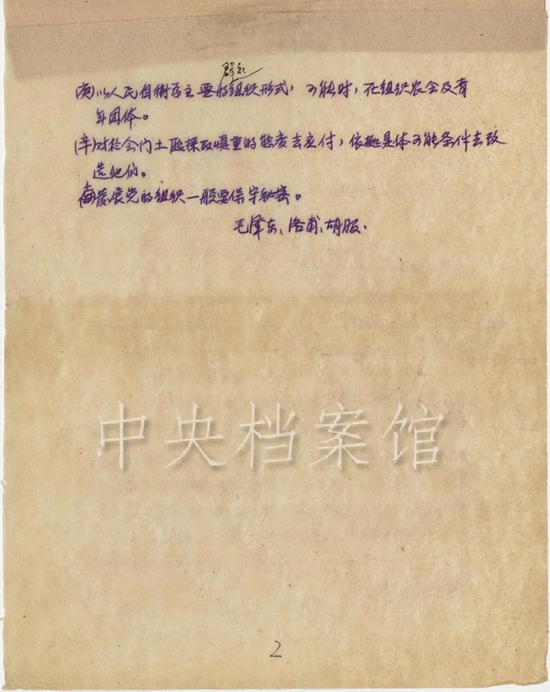 群众
(庚)以人民自衛为主要的组织形式，可能时，在组织农会及青
年团体。
(辛)对於会门土匪採取慎重的態度去应付，依据具体可能条件去改
造他们。
發展党的组织一般要保守秘密。
毛澤东、洛甫、胡服.
中央档案馆
2